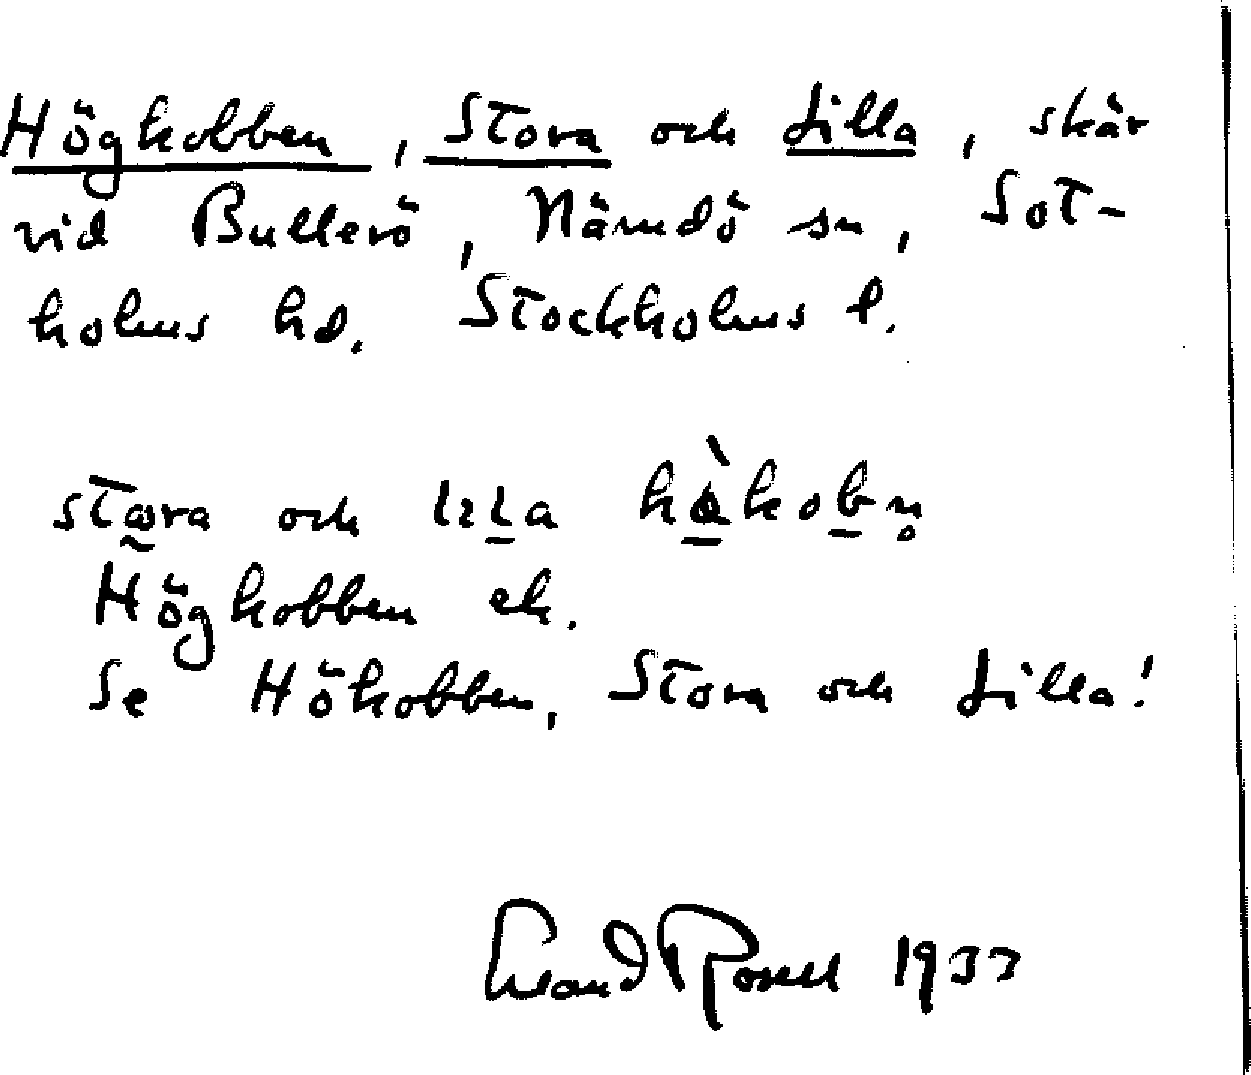 Högkobben, Stora och Lilla, skär
vid Bullerö, Nämdö sn, Sot-
holms hd. Stockholms l.
stora och lilla
Högkobben ek.
Se Hökobben, Stora och Lilla!
Erland Rosell 1933